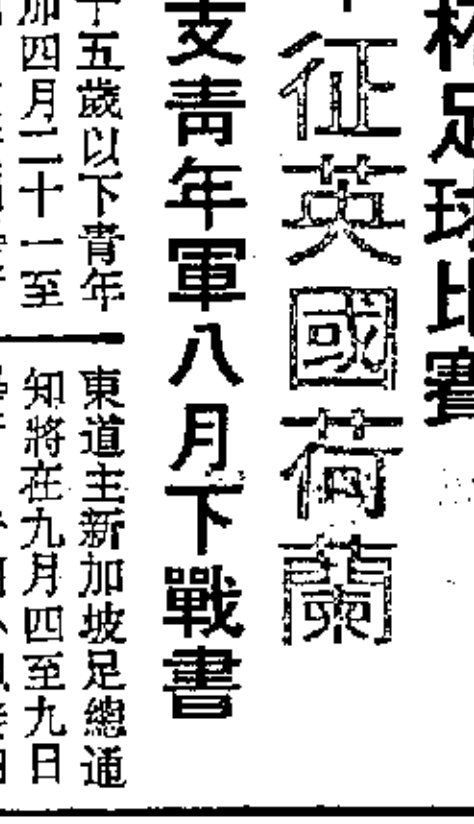 杯足球比賽
征英國荷蘭
支青年軍八月下戰書
五歲以下青年
加四月二十一至
東道主新加坡足總通
知將在九月四至九日